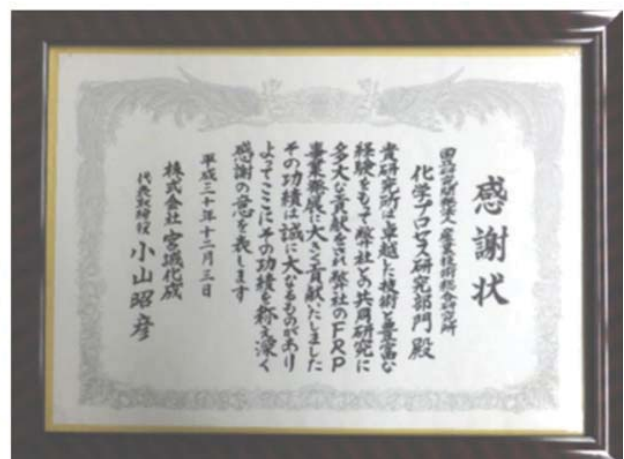 感謝状
国立研究開発法人 産業技術総合研究所
化学プロセス研究部門 殿
貴研究所は卓越した技術と豊富な
経験をもって弊社との共同研究に
多大な貢献をされ弊社のFRP
事業発展に大きく貢献いたしました
その功績は誠に大なるものがあり
よってここにその功績を称え深く
感謝の意を表します
平成三十年十二月三日
株式会社 宮城化成
代表取締役 小山昭彦